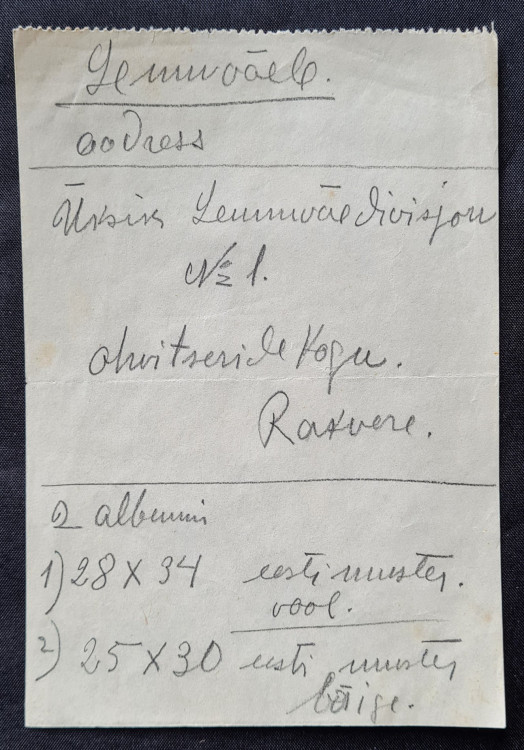 Lennuväele.
aadress
Üksik Lennuväedivisjon
№ 1.
ohvitseride Kogu.
Rakvere.
2 albumi
1) 28 X 34 eesti muster.
vööl.
2) 25 X 30 eesti muster